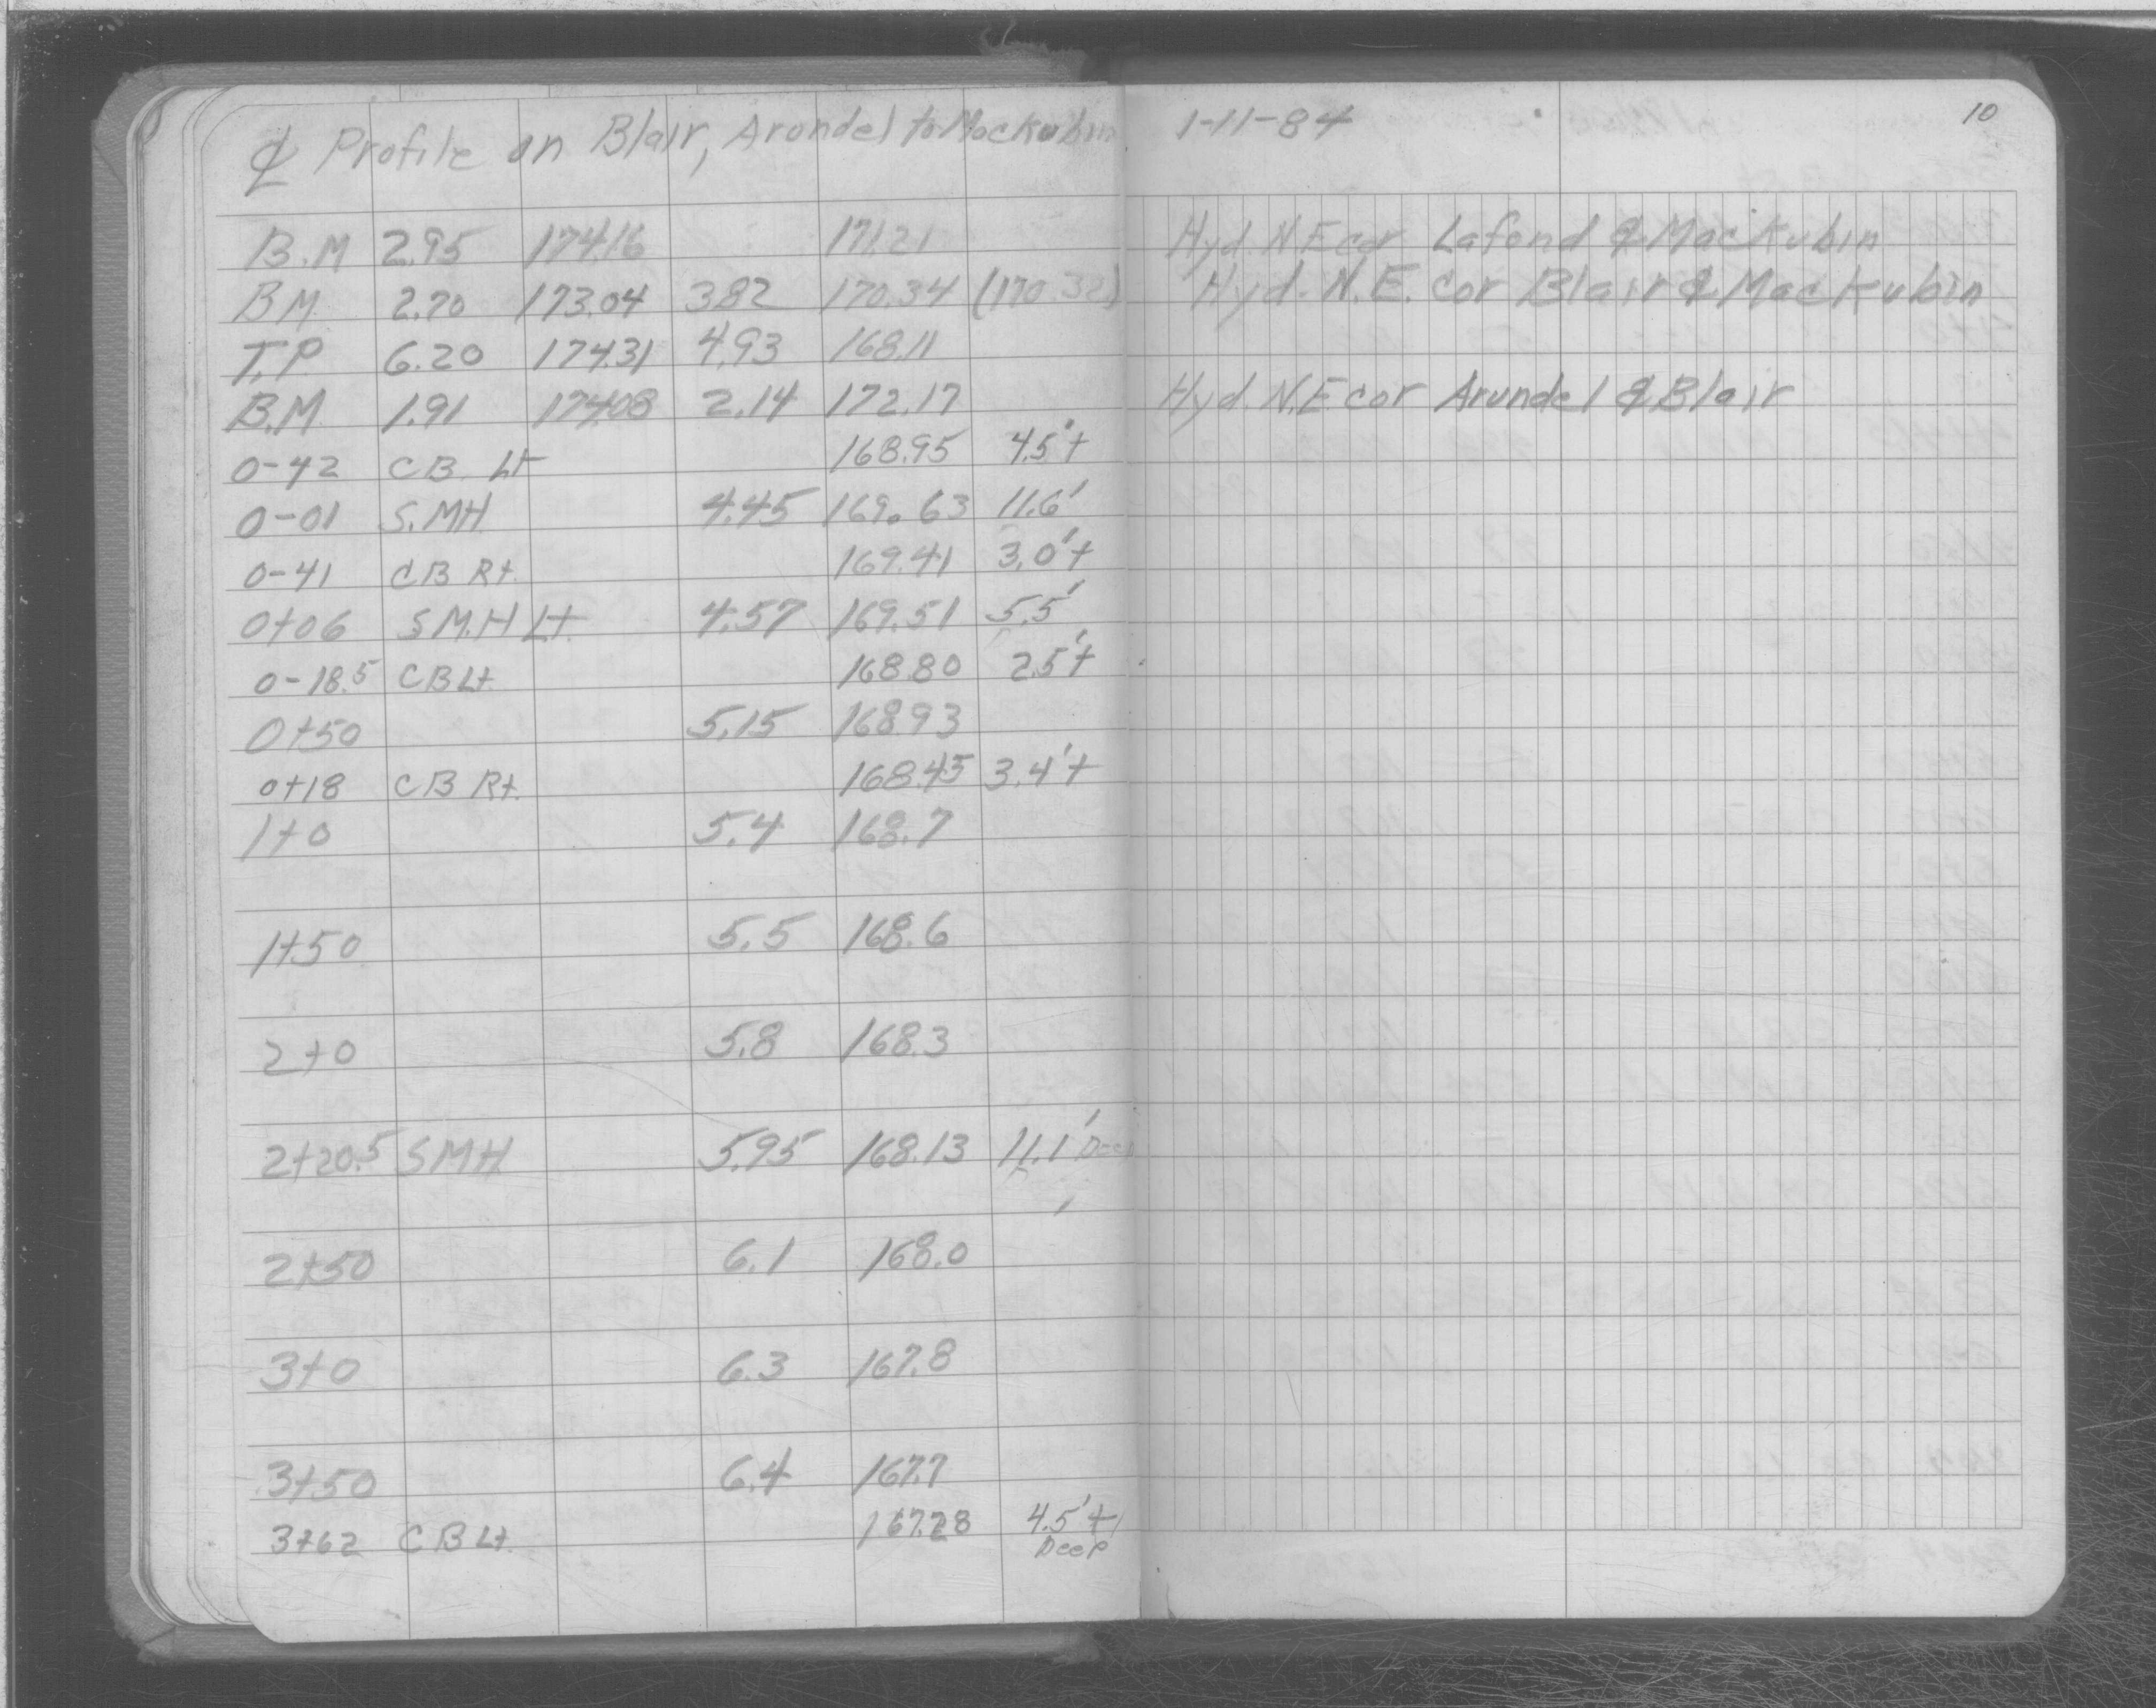 ℄ Profile on Blair, Arundel to Mackubin 1-11-84 10
B.M 2.95 174.16 171.21 Hyd. N.E cor Lafond & Mackubin
BM 2.70 173.04 3.82 170.34 (170.32) Hyd. N.E. cor Blair & Mackubin
T.P 6.20 174.31 4.93 168.11
B.M. 1.91 174.08 2.14 172.17 Hyd. N.E cor Arundel & Blair
0-42 CB Lt 168.95 4.5'±
0-01 S.MH 4.45 169.63 11.6'
0-41 CB Rt. 169.41 3.0'±
0+06 S M.H Lt. 4.57 169.51 5.5'
0-18.5 CB Lt. 168.80 2.5'±
0+50 5.15 168.93
0+18 CB Rt. 168.45 3.4'±
1+0 5.4 168.7
1+50 5.5 168.6
2+0 5.8 168.3
2+20.5 SMH 5.95 168.13 11.1' Deep
2+50 6.1 168.0
3+0 6.3 167.8
3+50 6.4 167.7
3+62 CB Lt. 167.28 4.5'±
Deep